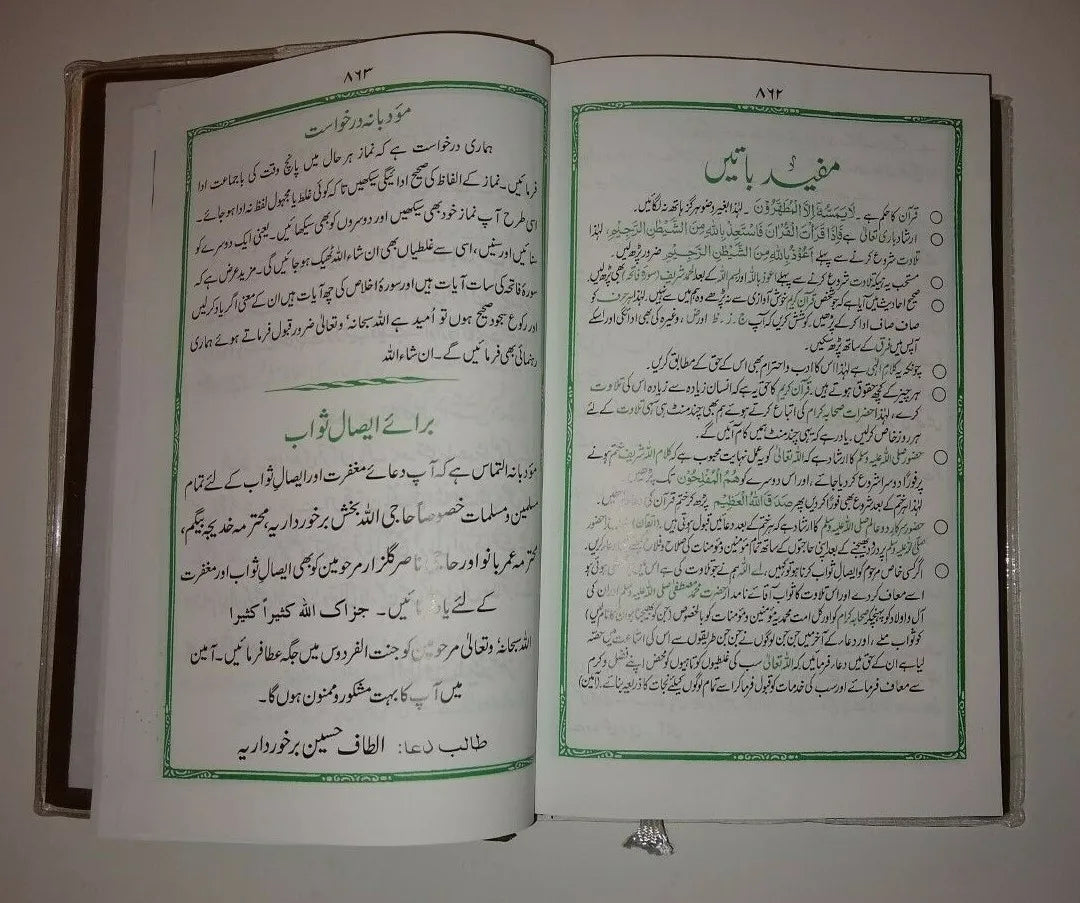 ٨٦٢
مفید باتیں
قرآن کا حکم ہے۔ لَا یَمَسُّہٗٓ اِلَّا الْمُطَھَّرُوْنَ ۔ لہٰذا بغیر وضو ہرگز ہاتھ نہ لگائیں۔
ارشاد باری تعالیٰ ہے فَاِذَا قَرَاْتَ الْقُرْاٰنَ فَاسْتَعِذْ بِاللّٰہِ مِنَ الشَّیْطٰنِ الرَّجِیْمِ، لہٰذا
تلاوت شروع کرنے سے پہلے اَعُوْذُ بِاللّٰہِ مِنَ الشَّیْطٰنِ الرَّجِیْمِ ضرور پڑھیں۔
مستحب یہ ہے کہ تلاوت شروع کرنے سے پہلے اعوذ باللہ اور بسم اللہ کے بعد الحمد شریف (سورۃ فاتحہ) بھی پڑھیں۔
صحیح احادیث میں آیا ہے کہ جو شخص قرآن کریم خوش آوازی سے نہ پڑھے وہ ہم میں سے نہیں، لہٰذا ہر حرف کو
صاف صاف ادا کر کے پڑھیں، کوشش کریں کہ آپ ج ، ز ، ظ اور ض ، وغیرہ کی بھی ادائیگی اور اسکے
آپس میں فرق کے ساتھ پڑھ سکیں۔
چونکہ یہ کلام الٰہی ہے لہٰذا اس کا ادب و احترام بھی اس کے حق کے مطابق کریں۔
ہر چیز کے کچھ حقوق ہوتے ہیں، قرآن کریم کا حق یہ ہے کہ انسان زیادہ سے زیادہ اس کی تلاوت
کرے، لہٰذا حضرات صحابہ کرام کی اتباع کرتے ہوئے ہم بھی چند منٹ ہی سہی تلاوت کے لئے
ہر روز خاص کر لیں۔ یاد رہے کہ یہی چند منٹ ہمیں کام آئیں گے۔
حضور صلی اللہ علیہ وسلم کا ارشاد ہے کہ اللہ تعالیٰ کو یہ عمل نہایت محبوب ہے کہ کلام اللہ شریف ختم ہونے
پر فوراً دوسرا شروع کر دیا جائے، اور اس دوسرے کو ھُمُ الْمُفْلِحُوْنَ تک پڑھیں۔
لہٰذا ہر ختم کے بعد شروع بھی فوراً کر دیں پھر صَدَقَ اللّٰہُ الْعَظِیْمُ پڑھ کر ختم قرآن کی دعا
حضور سرکار دو عالم صلی اللہ علیہ وسلم کا ارشاد ہے کہ ہر ختم کے بعد دعائیں قبول ہوتی ہیں۔ (اتقان) لہٰذا حضور
صلی اللہ علیہ وسلم پر درود بھیجنے کے بعد اپنی حاجتوں کے ساتھ تمام مؤمنین و مؤمنات کی صلاح و فلاح
اگر کسی خاص مرحوم کو ایصال ثواب کرنا ہو تو کہیں، اے اللہ ہم نے جو تلاوت کی ہے اس میں ہوئی ہو
اسے معاف کر دے اور اس تلاوت کا ثواب آقائے نامدار حضرت محمد مصطفیٰ صلی اللہ علیہ وسلم اور ان کی
آل و اولاد کو پہنچا کر صحابہ کرام کو اور کل امت محمدیہ مؤمنین و مؤمنات کو بالخصوص (جن کو بھیجنا ہو ان کا نام لیں)
کو ثواب ملے، اور دعاء کے آخر میں جن جن لوگوں نے جن جن طریقوں سے اس کی اشاعت میں حصہ
لیا ہے ان کے حق میں دعاء فرمائیں کہ اللہ تعالیٰ سب کی غلطیوں کو تاہیوں کو محض اپنے فضل و کرم
سے معاف فرمائے اور سب کی خدمات کو قبول فرما کر اسے تمام لوگوں کیلئے نجات کا ذریعہ بنائے۔ (آمین)
٨٦٣
مؤدبانہ درخواست
ہماری درخواست ہے کہ نماز ہر حال میں پانچ وقت کی باجماعت ادا
فرمائیں۔ نماز کے الفاظ کی صحیح ادائیگی سیکھیں تاکہ کوئی غلط یا مجہول لفظ نہ ادا ہو جائے۔
اسی طرح آپ نماز خود بھی سیکھیں اور دوسروں کو بھی سیکھائیں۔ یعنی ایک دوسرے کو
سنائیں اور سنیں، اسی سے غلطیاں بھی ان شاء اللہ ٹھیک ہو جائیں گی۔ مزید عرض ہے کہ
سورۂ فاتحہ کی سات آیات ہیں اور سورۂ اخلاص کی چھ آیات ہیں ان کے معنی اگر یاد کر لیں
اور رکوع سجود صحیح ہوں تو اُمید ہے اللہ سبحانہٗ وتعالیٰ ضرور قبول فرماتے ہوئے ہماری
رہنمائی بھی فرمائیں گے۔ ان شاء اللہ
برائے ایصال ثواب
مؤدبانہ التماس ہے کہ آپ دعائے مغفرت اور ایصالِ ثواب کے لئے تمام
مسلمین و مسلمات خصوصاً حاجی اللہ بخش برخورداریہ، محترمہ خدیجہ بیگم،
محترمہ عمر بانو اور حاجی ناصر گلزار مرحومین کو بھی ایصالِ ثواب اور مغفرت
کے لئے یاد فرمائیں۔ جزاک اللہ کثیراً کثیرا
اللہ سبحانہٗ وتعالیٰ مرحومین کو جنت الفردوس میں جگہ عطا فرمائیں۔ آمین
میں آپ کا بہت مشکور و ممنون ہوں گا۔
طالب دعا: الطاف حسین برخورداریہ